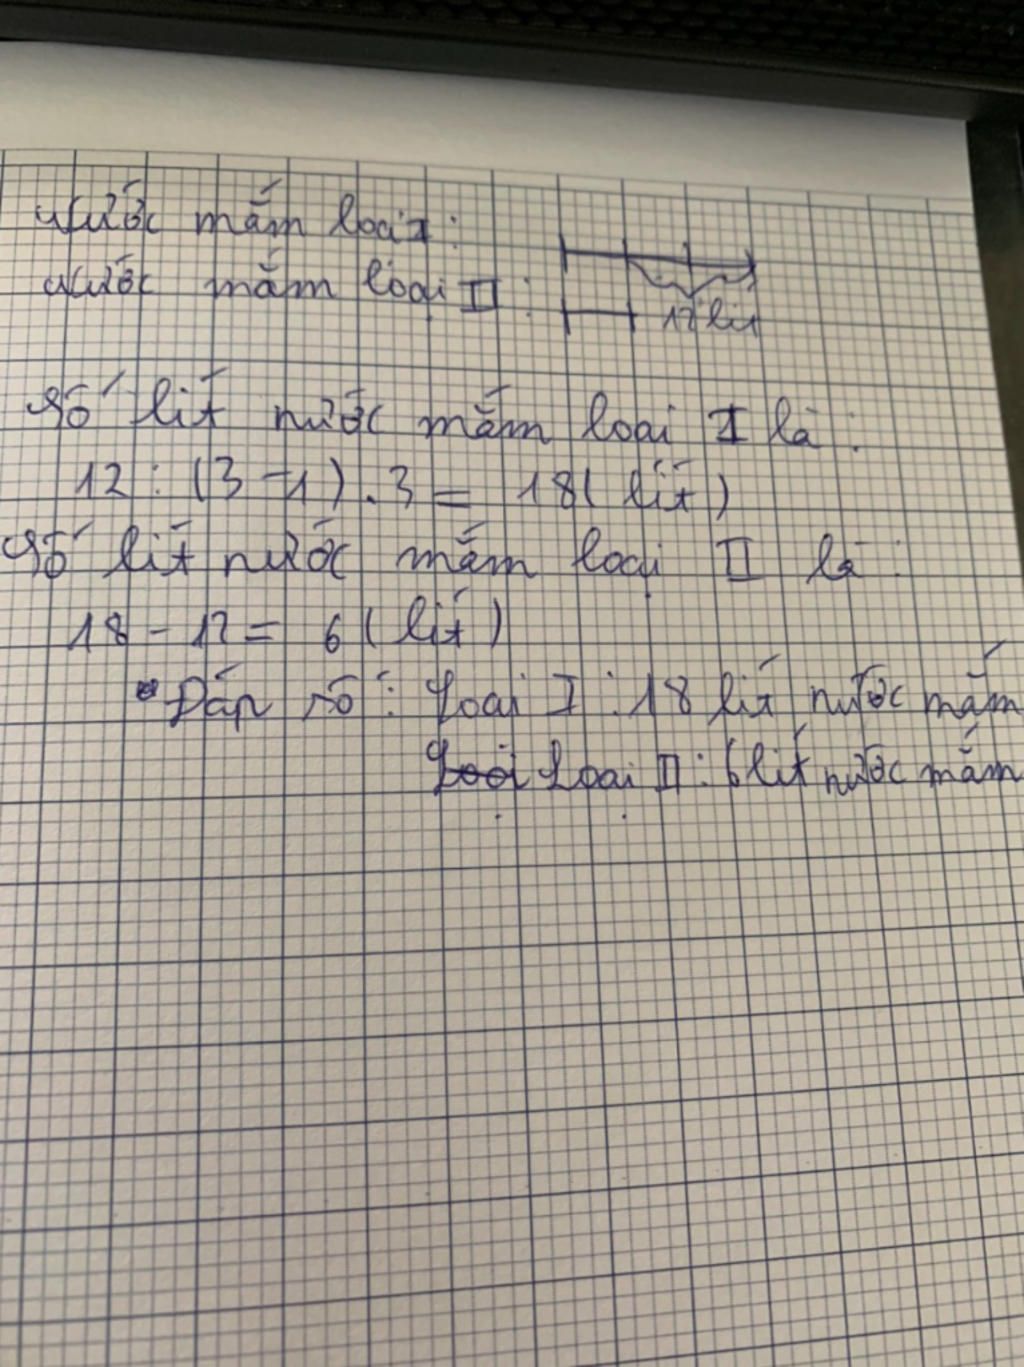 Nước mắm loại I:
Nước mắm loại II:
12 lít
Số lít nước mắm loại I là:
12 : (3 - 1) . 3 = 18 (lít)
Số lít nước mắm loại II là:
18 - 12 = 6 (lít)
Đáp số: Loại I : 18 lít nước mắm
Loại Loại II : 6 lít nước mắm